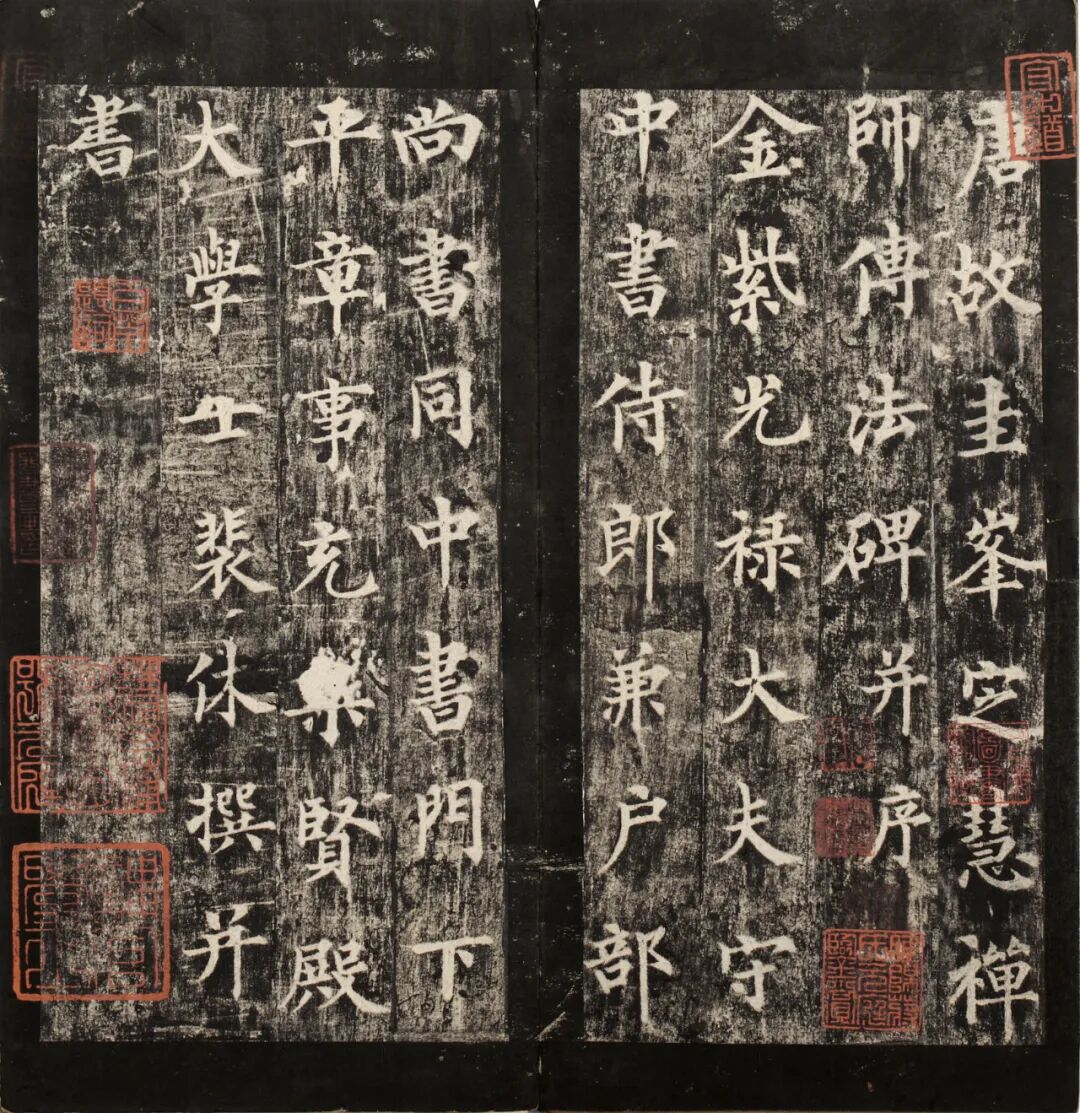 唐故圭峯定慧禪
師傳法碑并序
金紫光禄大夫守
中書侍郎兼户部
尚書同中書門下
平章事充集賢殿
大學士裴休撰并
書